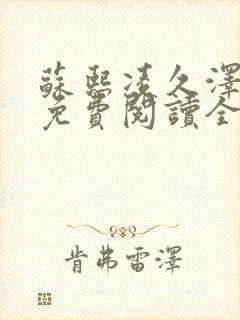 蘇熙凌久澤
免費閱讀全
肯弗雷澤